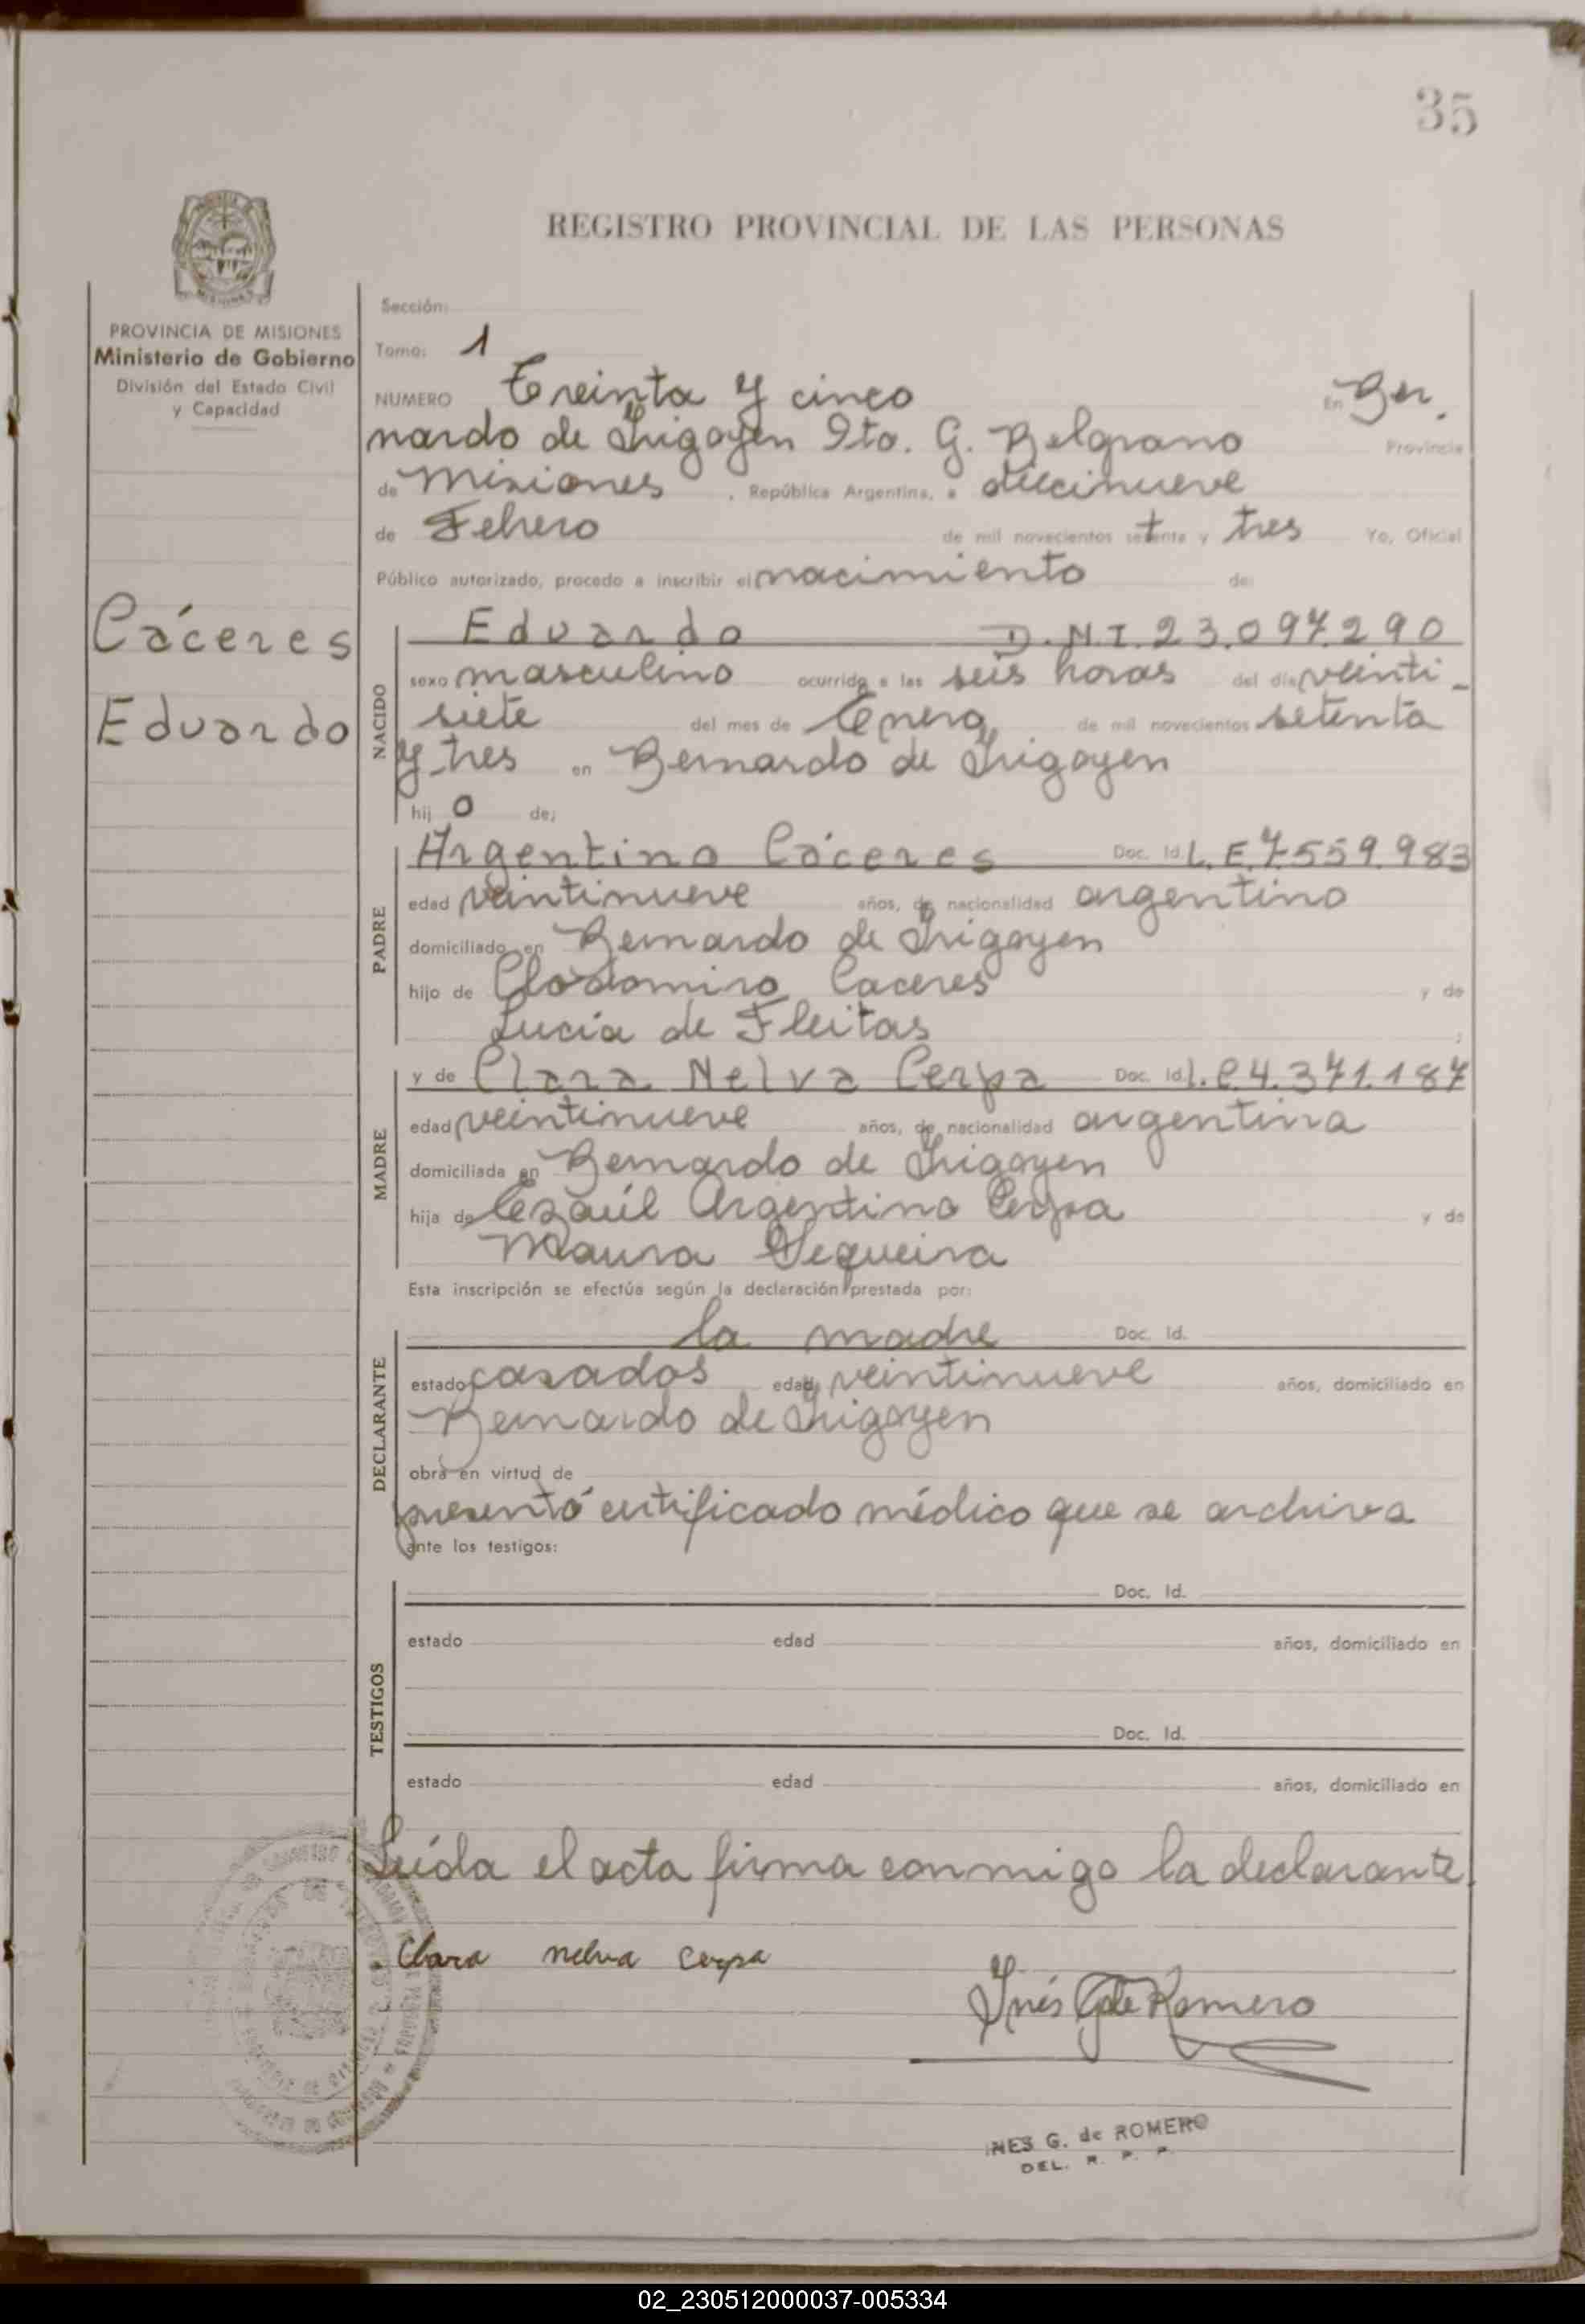 35
REGISTRO PROVINCIAL DE LAS PERSONAS
PROVINCIA DE MISIONES
Ministerio de Gobierno
División del Estado Civil
y Capacidad
Cáceres
Eduardo
Sección:
Tomo: 1
NUMERO Treinta y cinco En Ber.
nardo de Irigoyen Dto. G. Belgrano Provincia
de Misiones, República Argentina, a diecinueve
de Febrero de mil novecientos setenta y tres Yo, Oficial
Público autorizado, procedo a inscribir el nacimiento de:
NACIDO
Eduardo D.N.I. 23.097.290
sexo masculino ocurrido a las seis horas del día veinti-
siete del mes de Enero, de mil novecientos setenta
y tres en Bernardo de Irigoyen
hij o de:
PADRE
Argentino Cáceres Doc. Id. L.E. 7.559.983
edad veintinueve años, de nacionalidad argentino
domiciliado en Bernardo de Irigoyen
hijo de Clodomiro Caceres y de
Lucía de Fleitas ;
MADRE
y de Clara Nelva Cerpa Doc. Id. L.C. 4.371.187
edad veintinueve años, de nacionalidad argentina
domiciliada en Bernardo de Irigoyen
hija de Argentino Cerpa y de
Maura Sequeira
Esta inscripción se efectúa según la declaración prestada por:
DECLARANTE
la madre Doc. Id.
estado casados edad veintinueve años, domiciliado en
Bernardo de Irigoyen
obra en virtud de
presentó certificado médico que se archiva
ante los testigos:
TESTIGOS
Doc. Id.
estado edad años, domiciliado en
Doc. Id.
estado edad años, domiciliado en
Leída el acta firma conmigo la declarante.
Clara nelva cerpa
Inés G de Romero
INES G. de ROMERO
DEL. R. P. P.
02_230512000037-005334